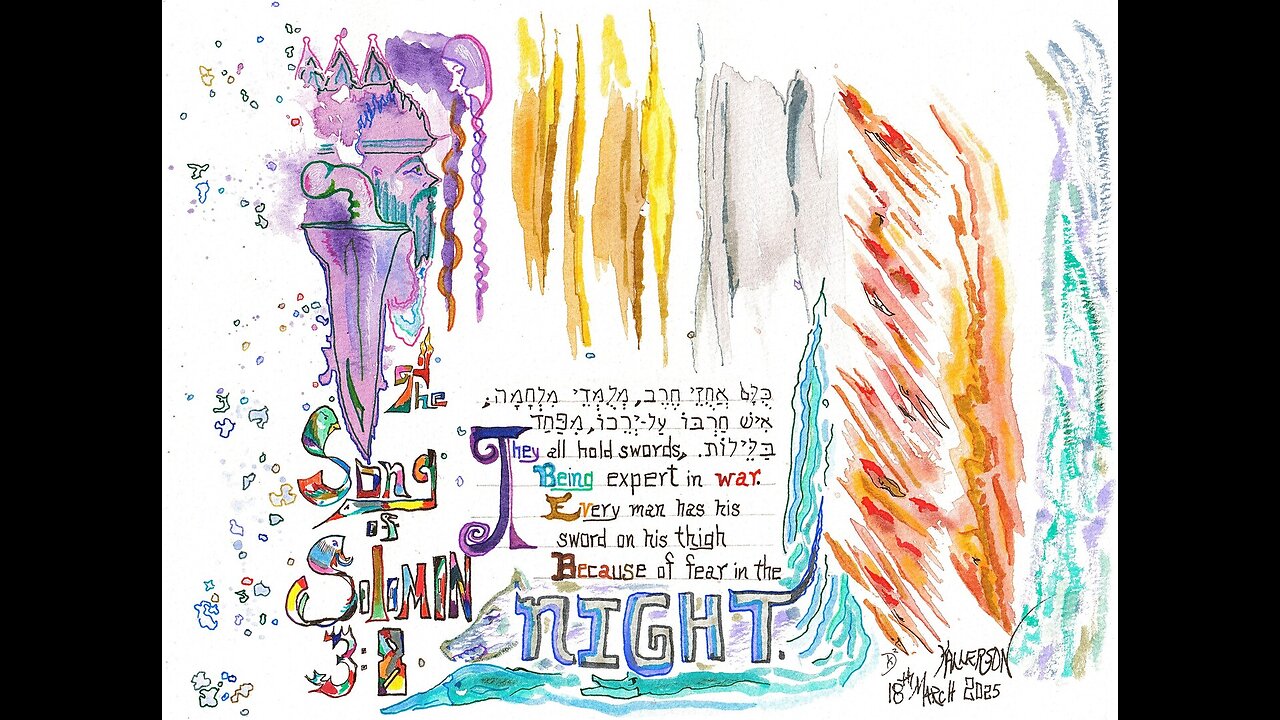 The
Song
of
SOLOMON
3:8
כֻּלָּם אֲחֻזֵי חֶרֶב, מְלֻמְּדֵי מִלְחָמָה;
אִישׁ חַרְבּוֹ עַל-יְרֵכוֹ, מִפַּחַד
בַּלֵּילוֹת.
They all hold swords,
Being expert in war.
Every man has his
sword on his thigh
Because of fear in the
NIGHT.
18th MARCH 2025